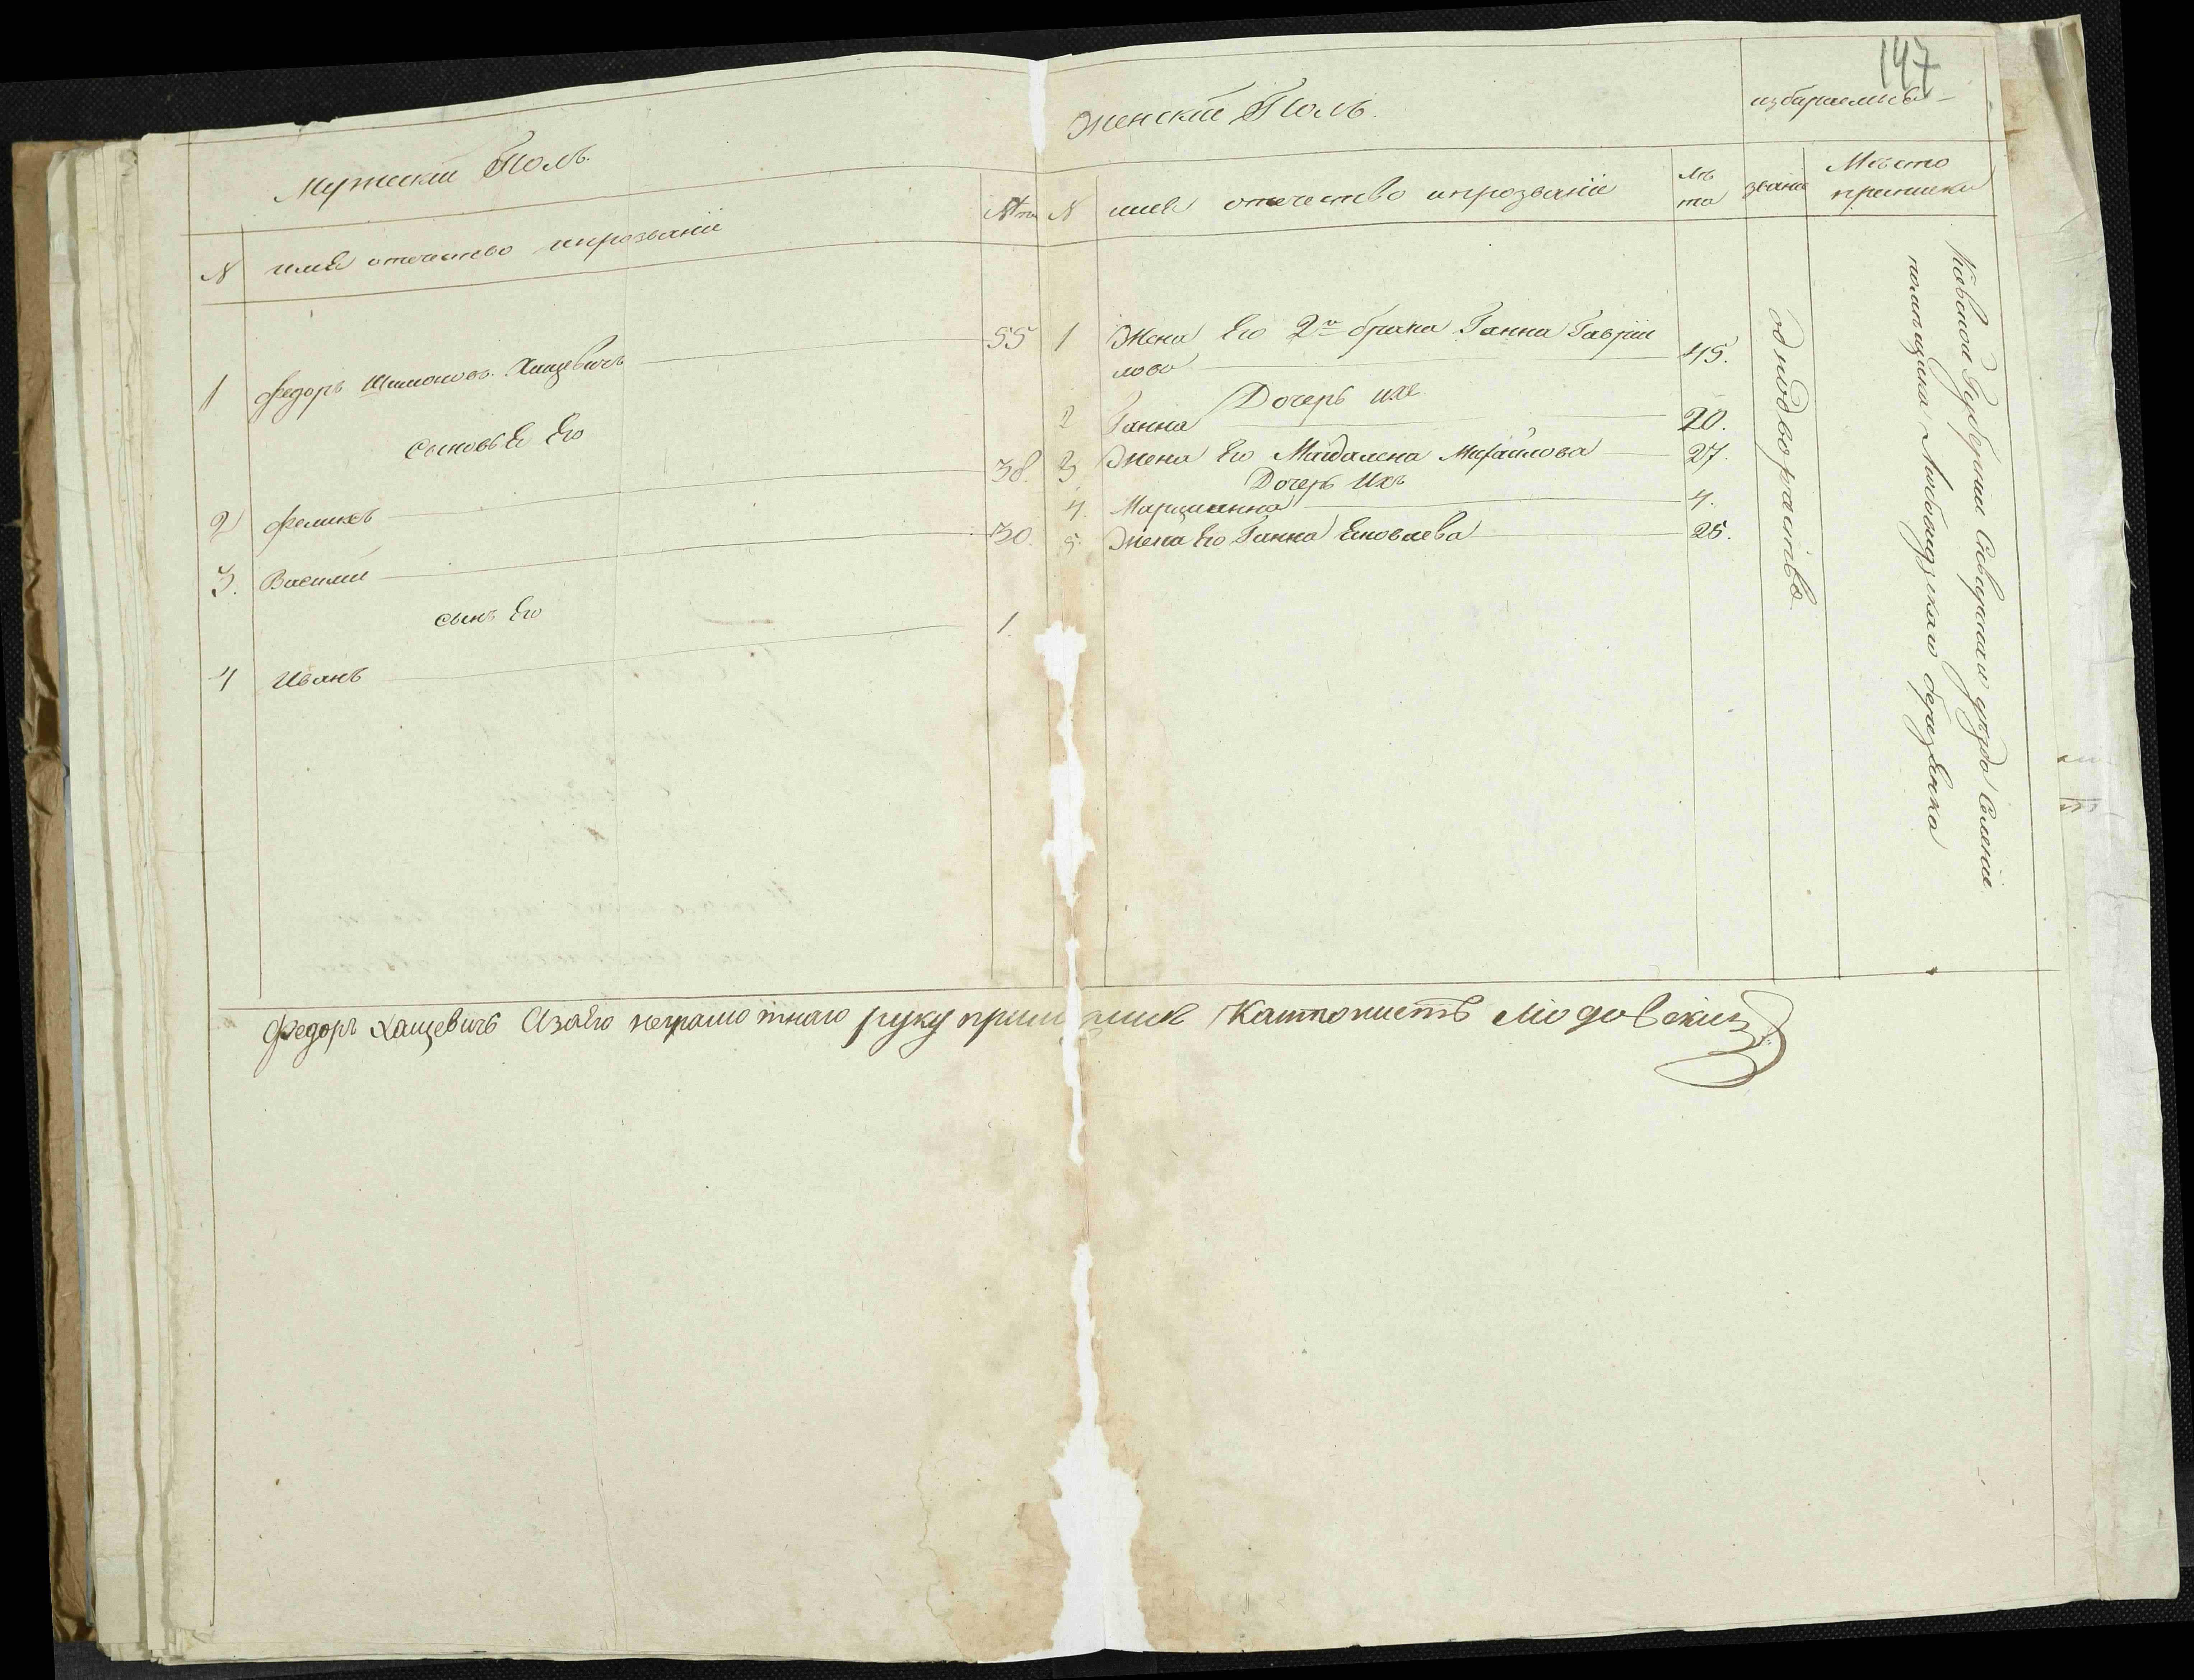 147
Мужеский Полъ.
N имя отечество ипрозваніе Лѣта
1 Федоръ Шимоновъ Хащевичъ 55
сыновьЕ Его
2 Феликсъ 38.
3. Василий 30.
сынъ Его
4 Иванъ 1.
Женский Полъ.
N имя отечество ипрозваніе Лѣ
та
1 Жена Его 2го брака Ганна Гаврии
лова 45.
Дочерь ихъ
2 Ганна 20.
3 Жена Его Магдалена Михайлова 27.
Дочерь Ихъ
4. Марцианна 4.
5. Жена Его Ганна Яковлева 25.
избираемыя
званіе
Мѣсто
приписки
однодворство
Губерніи уѣзда Селеніе
помѣщика
Федоръ Хащевичъ Азаего неграмотнаго руку приложилъ